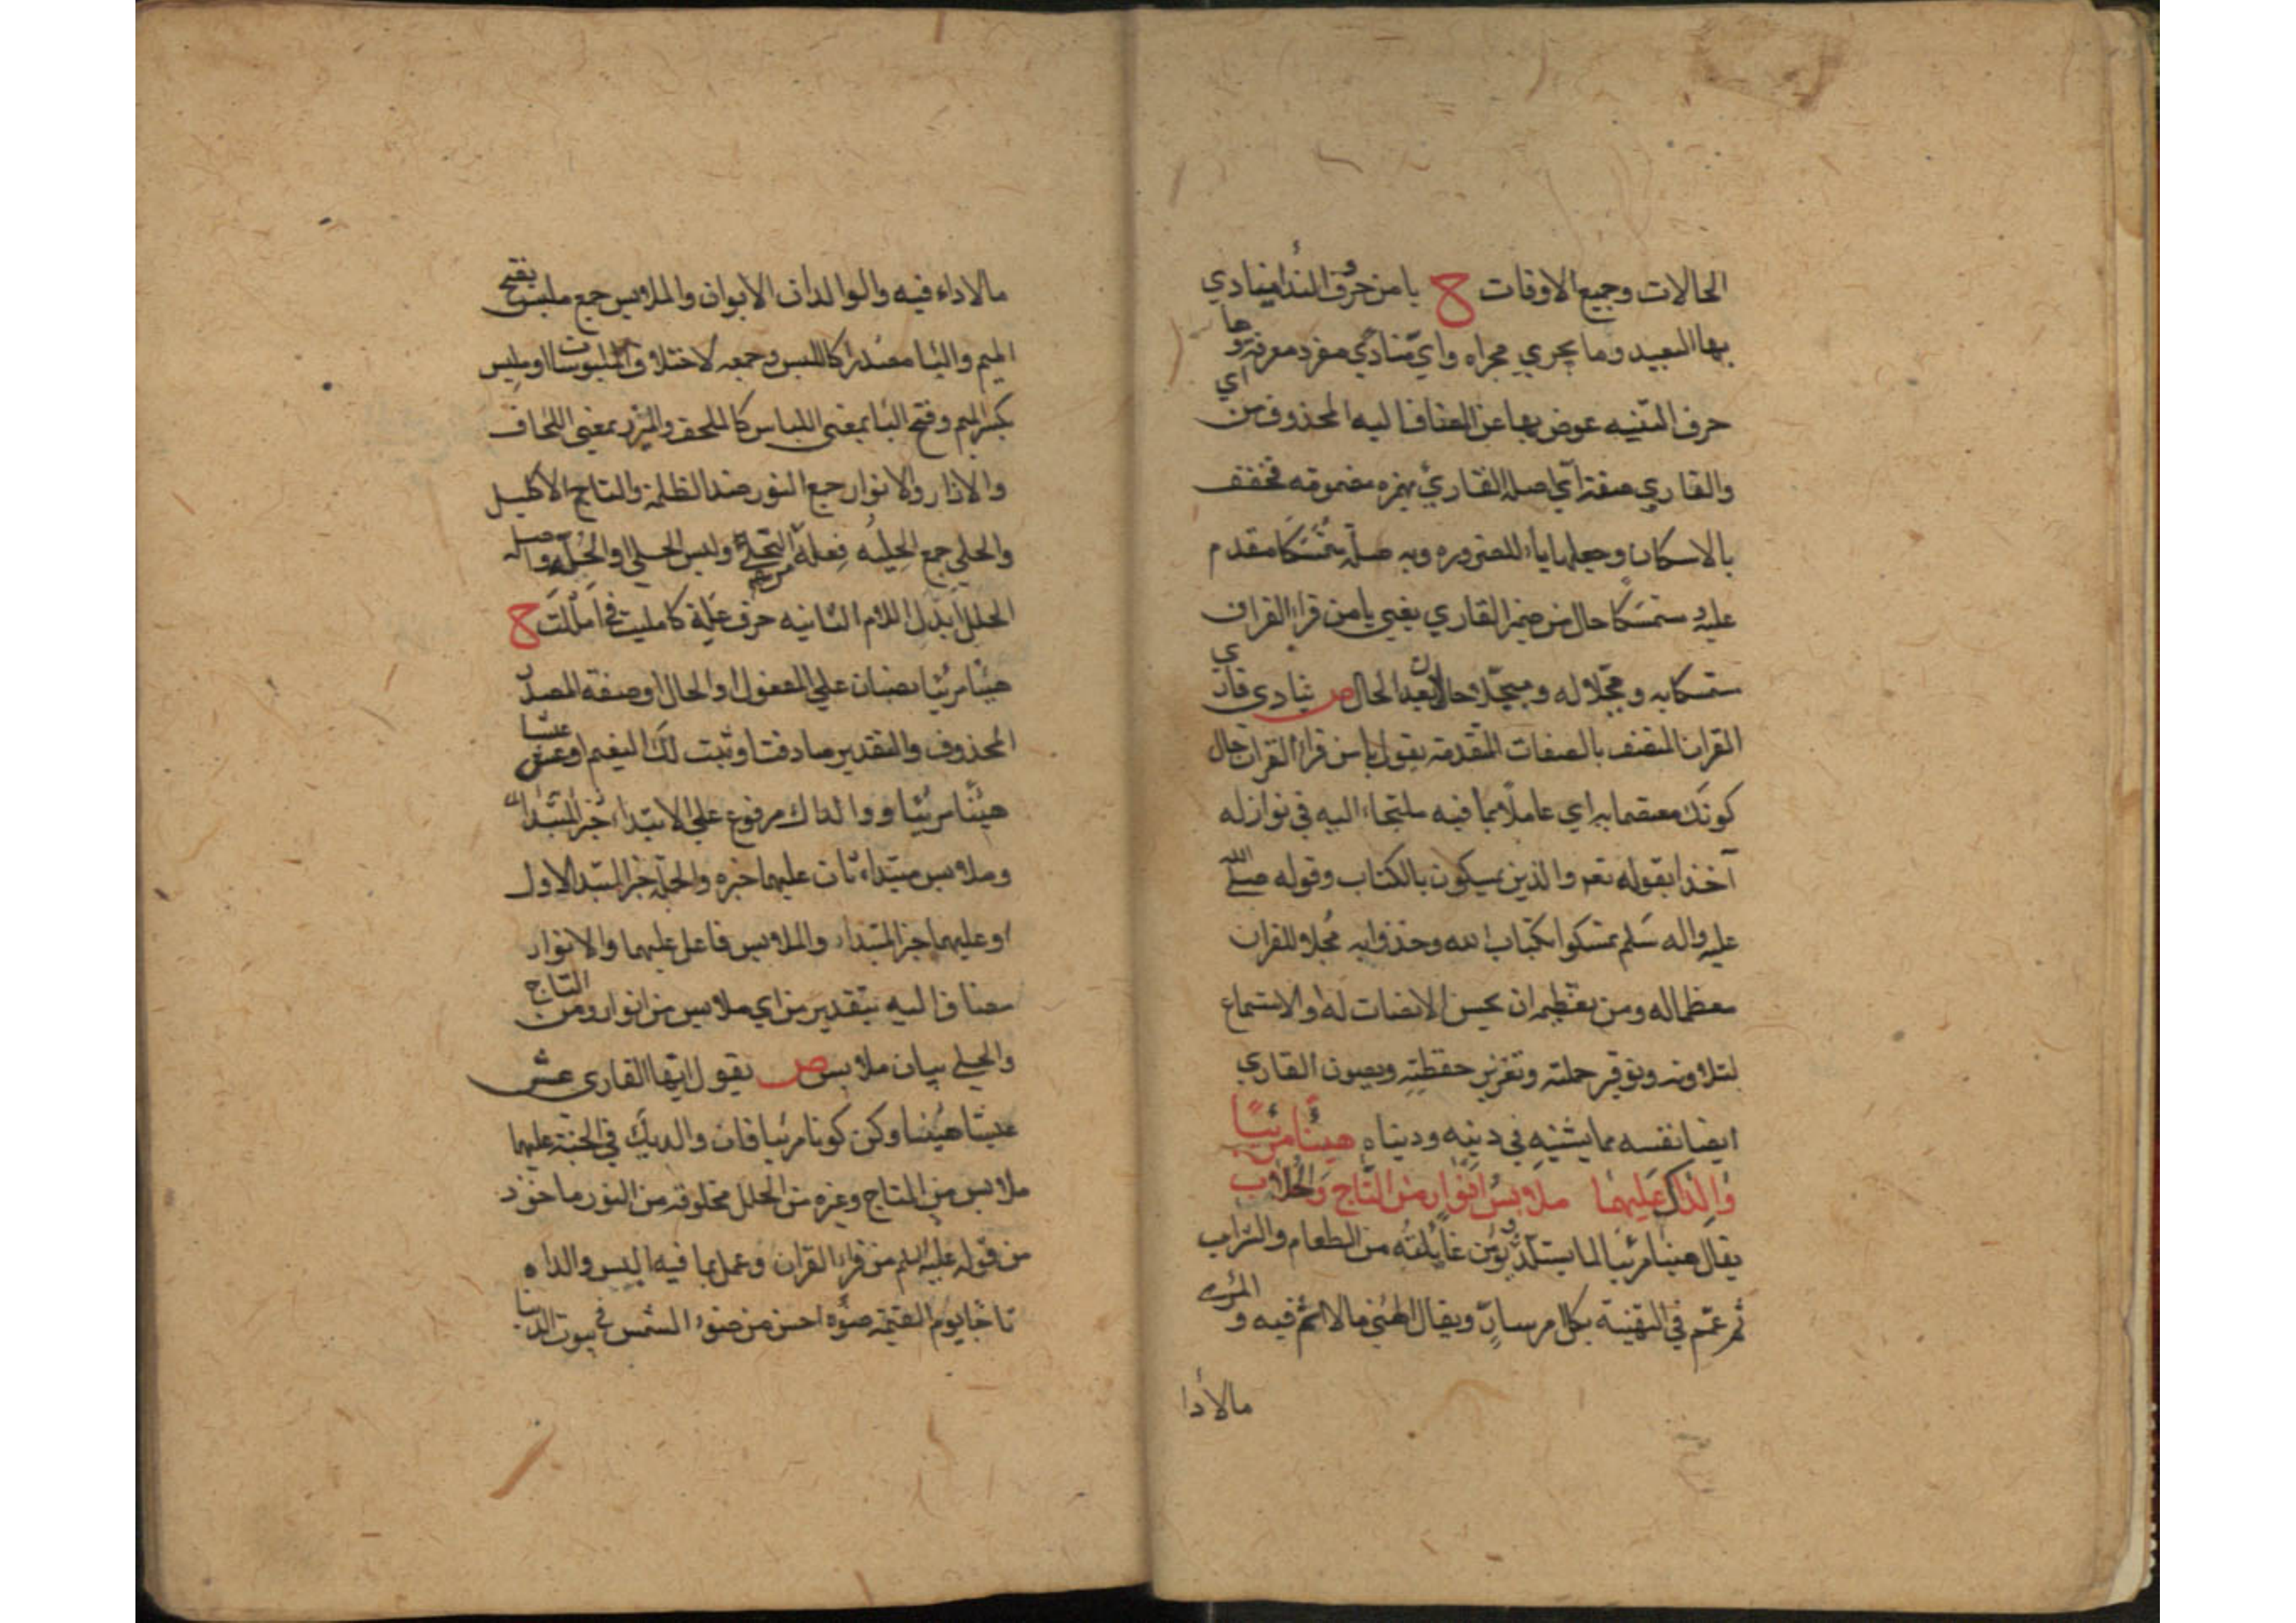 الحالات وجميع الاوقات ح يا من حروف الندا ينادي
بها البعيد وما يجري مجراه واي منادي مفرد معرفة وها
حرف التنبيه عوض بها عن المضاف اليه المحذوف من اي
والقاري صفة اي اصله القارئ بهمزه مضمومه فخفف
بالاسكان وجعلها ياء للضروره وبه صلة متمسكا مقدم
عليه ومتمسكا حال من ضمير القاري يعني يا من قرا القران
متمسكا به ومجلا له ومبجلا حالان بعد الحال ص ينادي قاري
القران المتصف بالصفات المتقدمه يقول يا من قرا القران حال
كونك معتصما به اي عاملا بما فيه ملتجاء اليه في نوازله
آخذا بقوله تعم والذين يمسكون بالكتاب وقوله صلى الله
عليه واله سلم تمسكوا بكتاب الله وخذوا به مجلا للقران
معظما له ومن تعظيمه ان يحسن الانصات له والاستماع
لتلاوته وتوقير حملته وتعزيز حفظته ويصون القاري
ايضا نفسه مما يشينه في دينه ودنياه هنيئا مريئا
والداك عليهما ملابس انوار من التاج والحلا ب
يقال هنيئا مريئا لما يستلذ ويؤمن غايلته من الطعام والشراب
ثم عمم في التهنية بكل امر سار ويقال الهني ما لا اثم فيه و المرئ
مالاأدا
مالاداء فيه والوالدان الابوان والملابس جمع ملبس بفتح
الميم والبا مصدر كاللبس وجمعه لاختلاف الملبوسات او ملبس
بكسر الميم وفتح البا بمعنى اللباس كالملحف والميزر بمعنى اللحاف
والازار والانوار جمع النور ضد الظلمة والتاج الاكليل
والحلي جمع الحليه فعلة من التحلي ولبس الحلي او الحلة واصله
الحلل ابدل اللام الثانيه حرف علة كامليت في امللت ح
هنيئا مريئا نصبان علي المفعول او الحال او صفة المصدر
المحذوف والتقدير صادفت او ثبت لك النيعم او عش عيشا
هنيئا مريئا ووالداك مرفوع علي الابتداء خبر المبتدا
وملابس مبتداء ثان عليهما خبره والجملة خبر المبتدا الاول
او عليهما خبر المبتداء والملابس فاعل عليهما والانوار
مضاف اليه بتقدير من اي ملابس من انوار ومن التاج
والحلي بيان ملابس ص يقول ايها القاري عش
عيشا هنيئا وكن كونا مريئا فان والديك في الجنة عليهما
ملابس من التاج وغيره من الحلل مخلوقة من النور ماخوذ
من قوله عليه السلم من قرا القران وعمل بما فيه البس والداه
تاجا يوم القيمة ضوءه احسن من ضوء الشمس في بيوت الدنيا